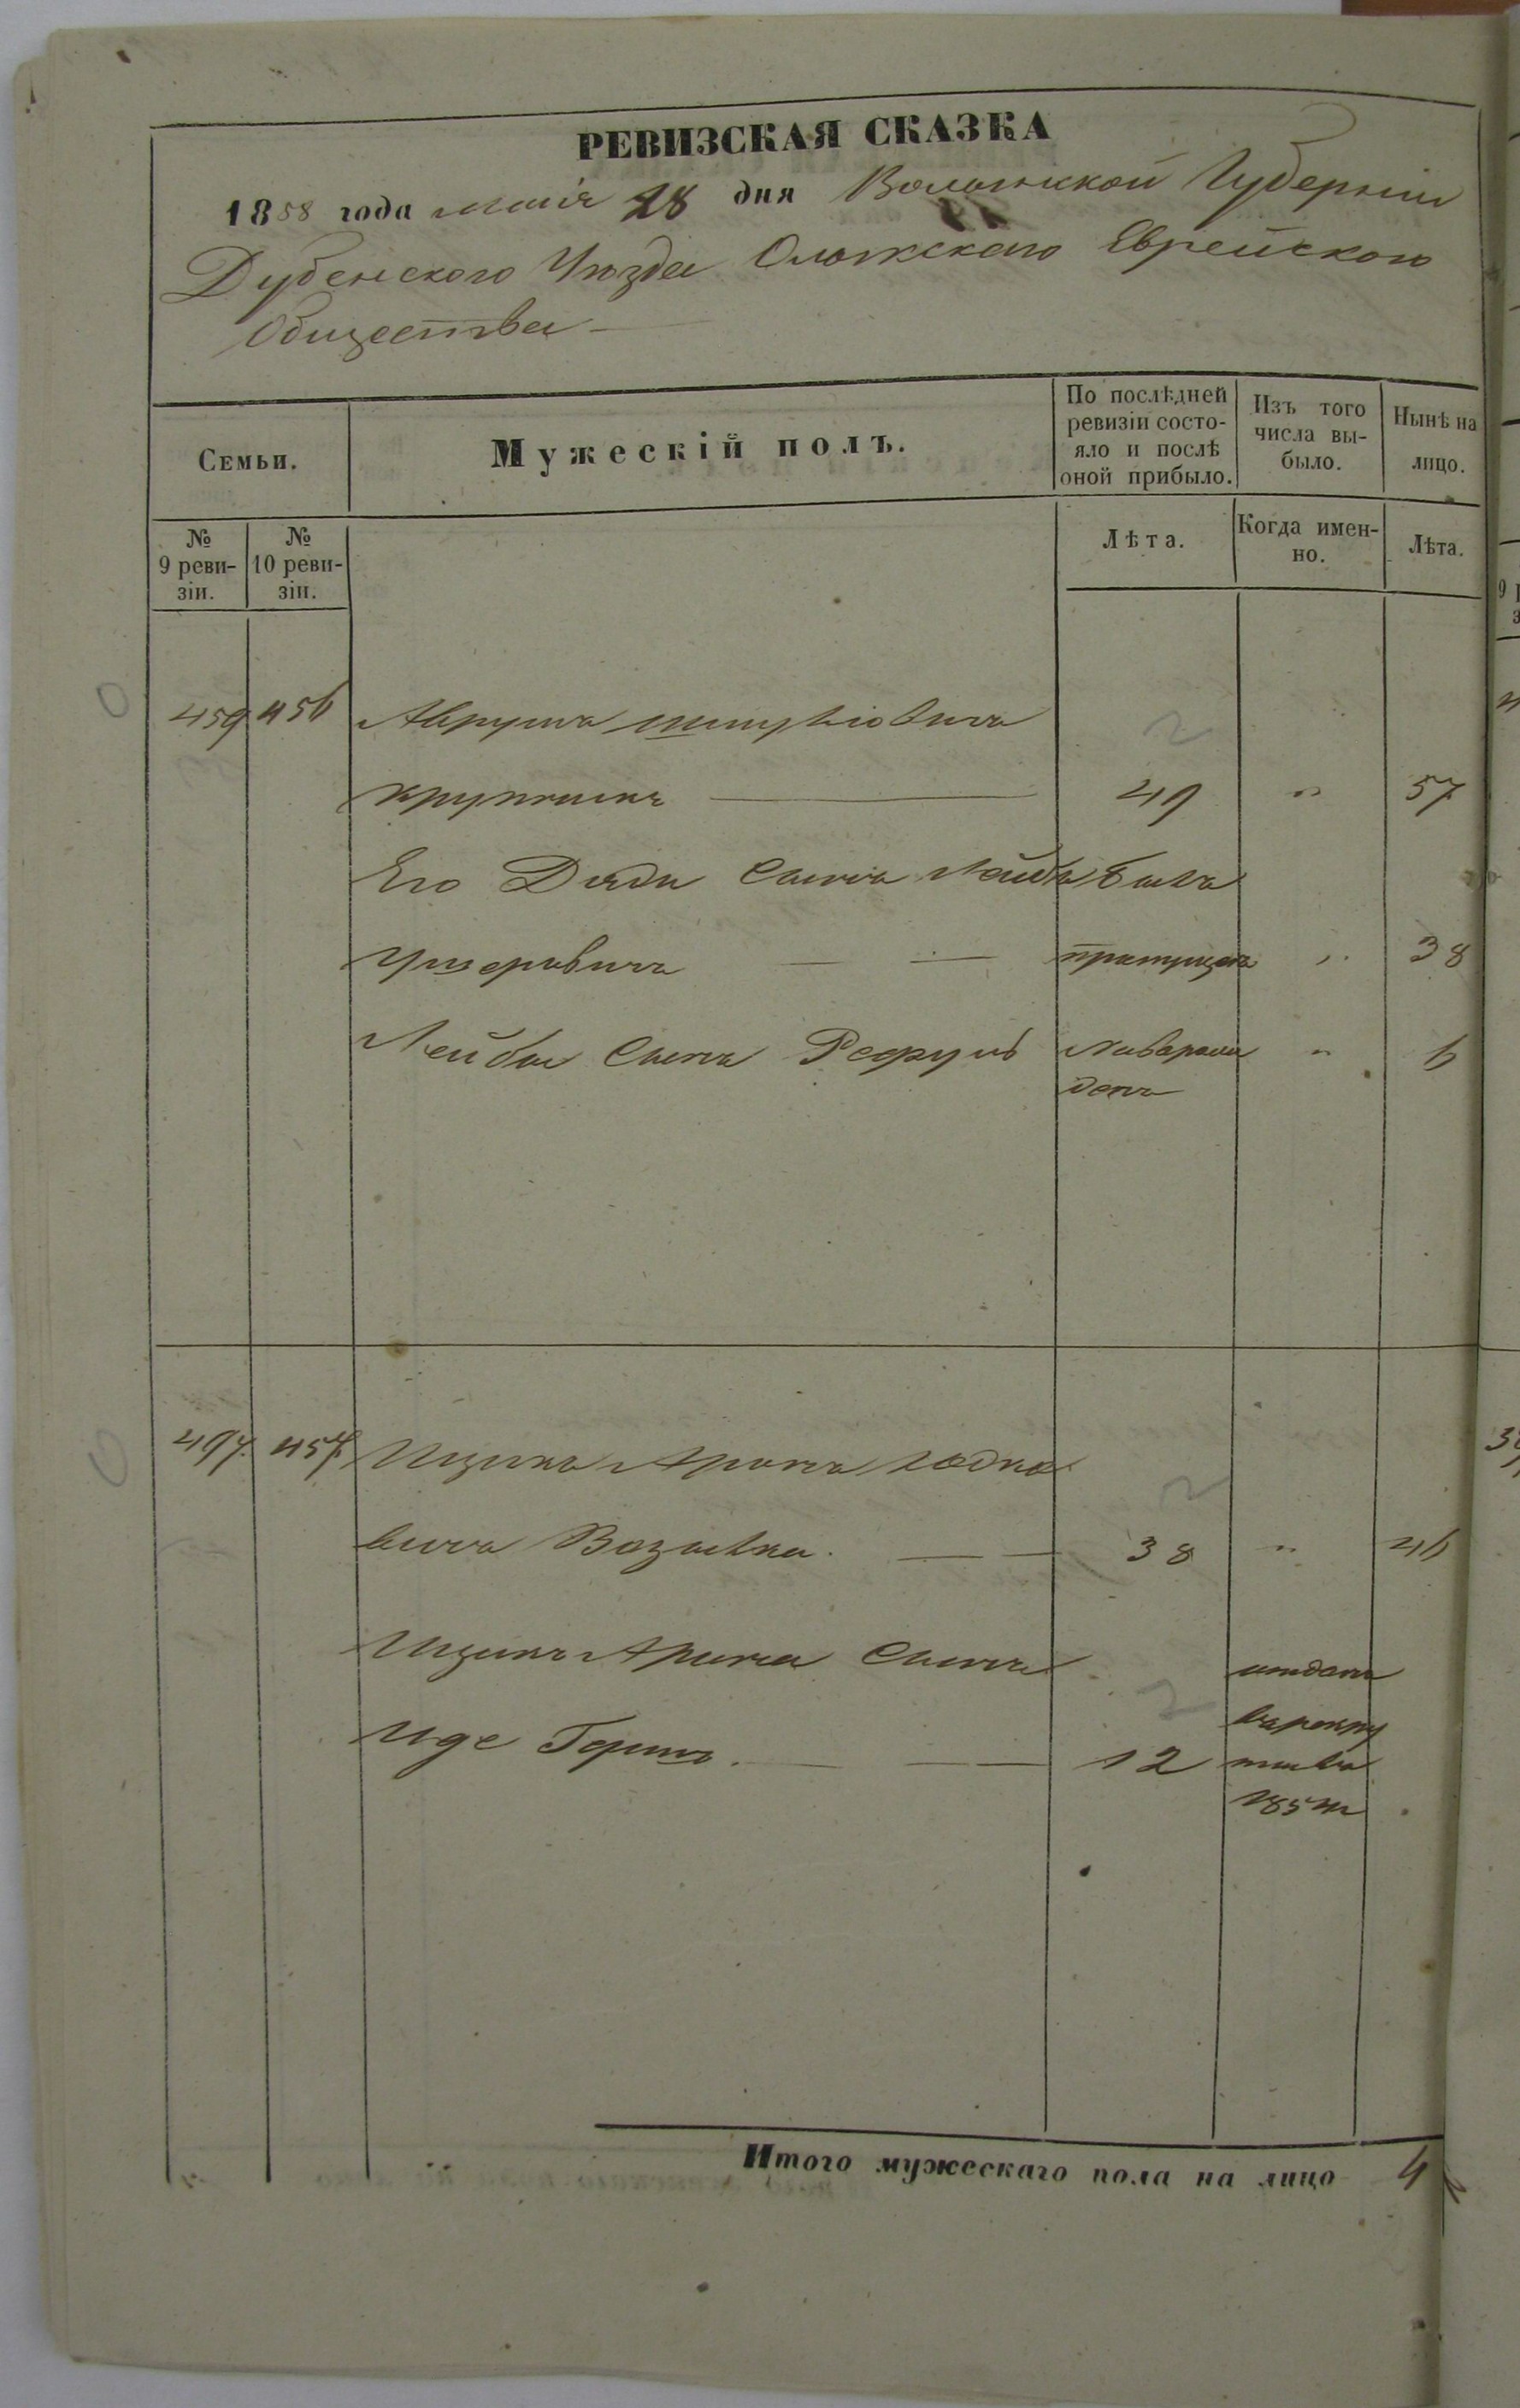 РЕВИЗСКАЯ СКАЗКА
1858 года маія 28 дня Волынской Губерніи
Дубенского Уѣзда Олыкскаго Еврейскаго
Общества
Семьи.
Мужескій полъ.
По послѣдней
ревизіи состо-
яло и послѣ
оной прибыло.
Изъ того
числа вы-
было.
Нынѣ на
лицо.
№
9 реви-
зіи.
№
10 реви-
зіи.
Лѣта.
Когда имен-
но.
Лѣта.
459 456 Аврумъ
крупникъ 49 " 57
Его Дяди Сынъ Лейба былъ
Ушеровичъ пропущенъ " 38
Лейбы Сынъ Рефуль новорож
денъ " 6
497. 457. Ицикъ Аронъ Іодко
вичъ 38 " 46
Ицикъ Арона Сынъ отданъ
Иде Гершъ. 12 врекру
ты въ
185
Итого мужескаго пола на лицо 4